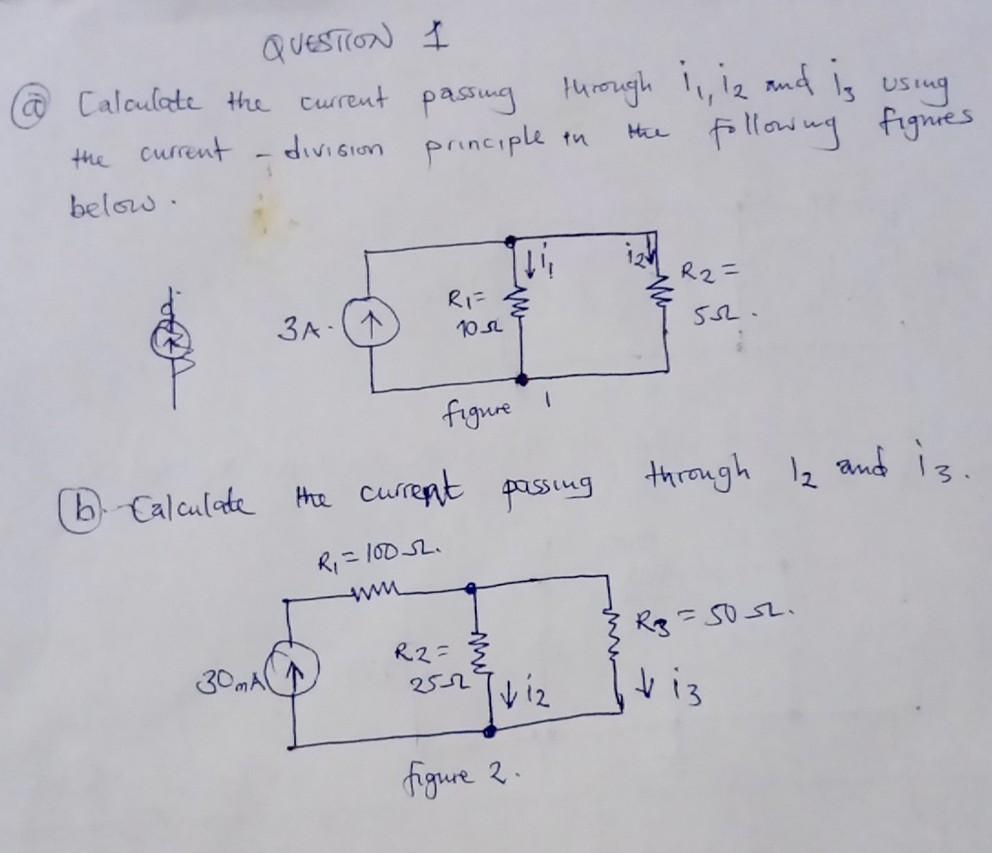 QUESTION 1
(a) Calculate the current passing through i1, i2 and i3 using
the current - division principle in the following figures
below.
i1
i2
R1=
10Ω
R2=
5Ω.
3A.
figure 1
(b). Calculate the current passing through I2 and i3.
R1=100Ω.
R2=
25Ω
R3=50Ω.
30mA
i2
i3
figure 2.